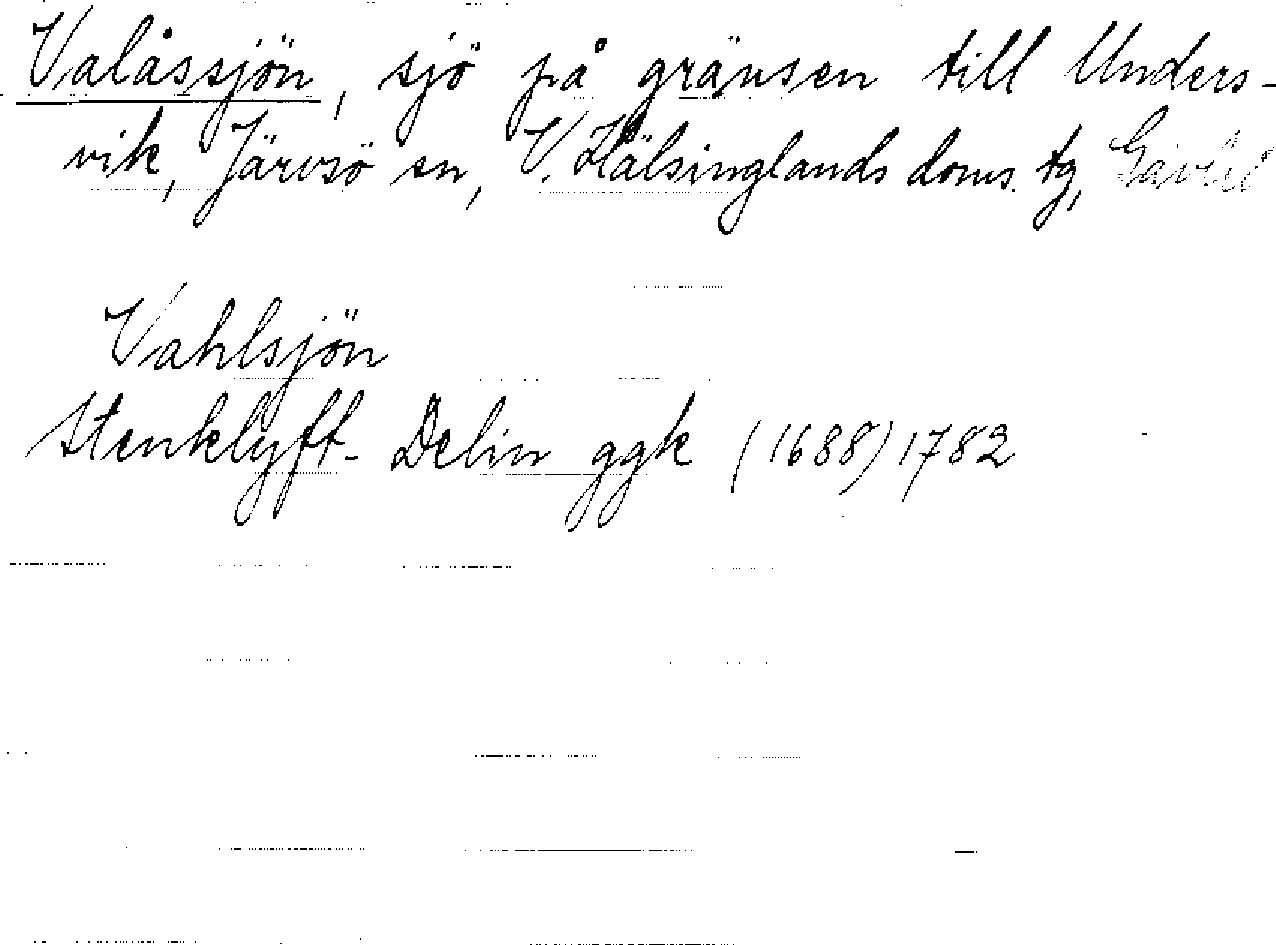 Valåssjön, sjö på gränsen till Unders-
vik, Järvsö sn, V. Hälsinglands doms. tg,
Vahlsjön
Stenklyft- Delin ggk (1688) 1782